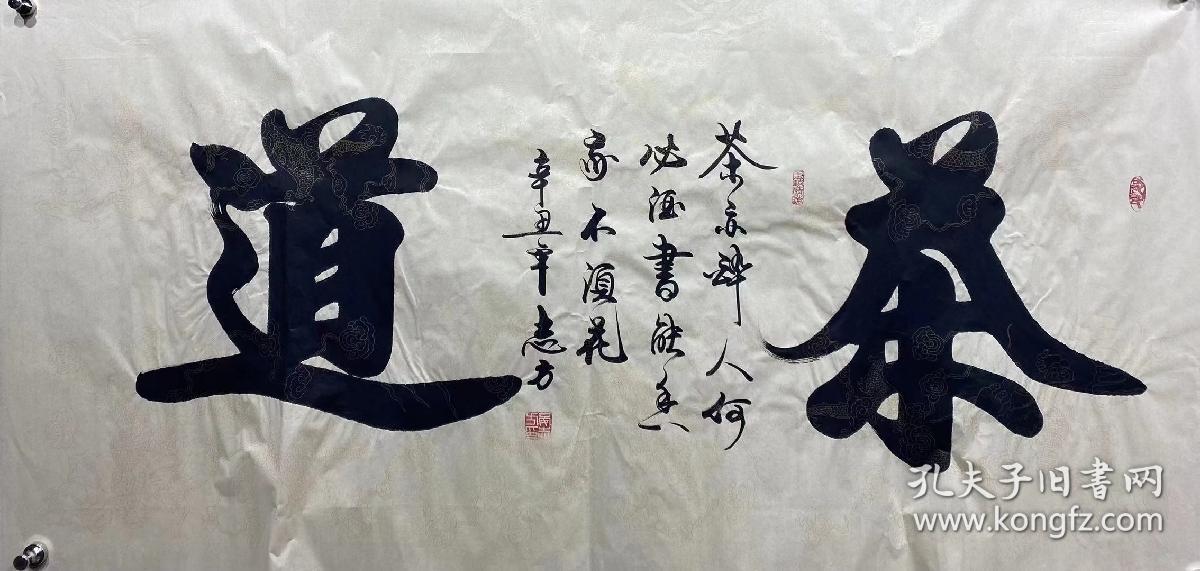 茶
茶亦醉人何
必酒書能香
我不須花
辛丑年志方
道
孔夫子旧书网
www.kongfz.com